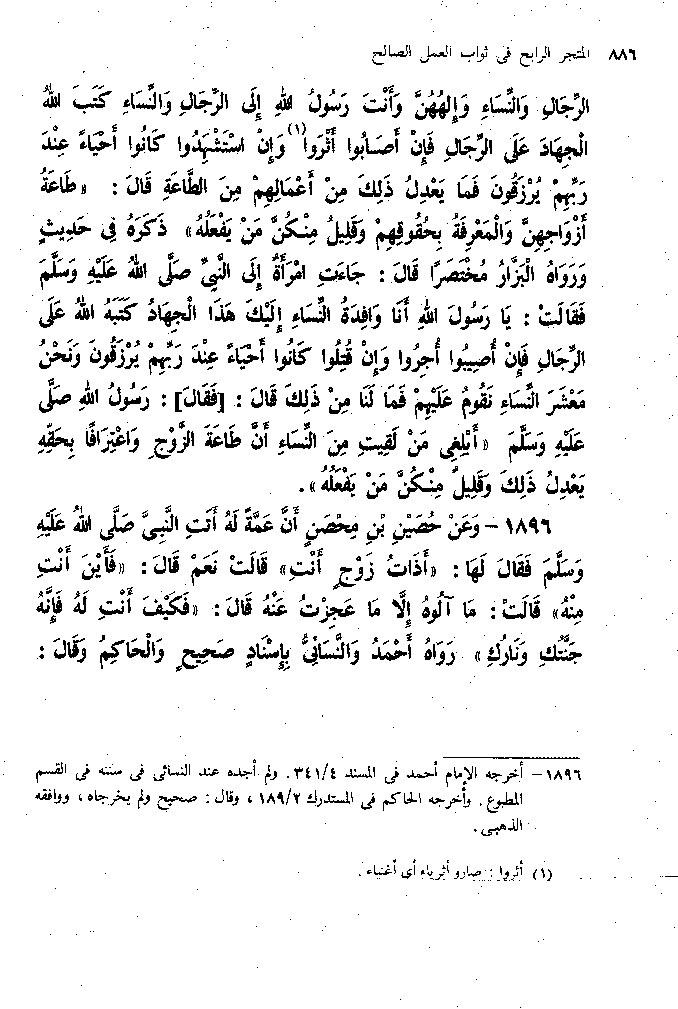 ٨٨٦ المتجر الرابح فى ثواب العمل الصالح
الرِّجَالِ وَالنِّسَاءِ وَإِلٰهُهُنَّ وَأَنْتَ رَسُولُ اللهِ إِلَى الرِّجَالِ وَالنِّسَاءِ كَتَبَ اللهُ
الْجِهَادَ عَلَى الرِّجَالِ فَإِنْ أَصَابُوا أَثْرَوا(١) وَإِنْ اسْتَشْهَدُوا كَانُوا أَحْيَاءً عِنْدَ
رَبِّهِمْ يُرْزَقُونَ فَمَا يَعْدِلُ ذَلِكَ مِنْ أَعْمَالِهِمْ مِنَ الطَّاعَةِ قَالَ : «طَاعَةُ
أَزْوَاجِهِنَّ وَالْمَعْرِفَةُ بِحُقُوقِهِمْ وَقَلِيلٌ مِنْكُنَّ مَنْ يَفْعَلُهُ» ذَكَرَهُ فِى حَدِيثٍ
وَرَوَاهُ الْبَزَّارُ مُخْتَصَرًا قَالَ : جَاءَتِ امْرَأَةٌ إِلَى النَّبِىِّ صَلَّى اللهُ عَلَيْهِ وَسَلَّمَ
فَقَالَتْ : يَا رَسُولَ اللهِ أَنَا وَافِدَةُ النِّسَاءِ إِلَيْكَ هَذَا الْجِهَادُ كَتَبَهُ اللهُ عَلَى
الرِّجَالِ فَإِنْ أُصِيبُوا أُجِرُوا وَإِنْ قُتِلُوا كَانُوا أَحْيَاءً عِنْدَ رَبِّهِمْ يُرْزَقُونَ وَنَحْنُ
مَعْشَرَ النِّسَاءِ نَقُومُ عَلَيْهِمْ فَمَا لَنَا مِنْ ذَلِكَ قَالَ : [فَقَالَ] : رَسُولُ اللهِ صَلَّى
عَلَيْهِ وَسَلَّمَ «أَبْلِغِى مَنْ لَقِيتِ مِنَ النِّسَاءِ أَنَّ طَاعَةَ الزَّوْجِ وَاعْتِرَافًا بِحَقِّهِ
يَعْدِلُ ذَلِكَ وَقَلِيلٌ مِنْكُنَّ مَنْ يَفْعَلُهُ» .
١٨٩٦ – وَعَنْ حُصَيْنِ بْنِ مِحْصَنٍ أَنَّ عَمَّةً لَهُ أَتَتِ النَّبِىَّ صَلَّى اللهُ عَلَيْهِ
وَسَلَّمَ فَقَالَ لَهَا : «أَذَاتُ زَوْجٍ أَنْتِ» قَالَتْ نَعَمْ قَالَ : «فَأَيْنَ أَنْتِ
مِنْهُ» قَالَتْ : مَا آلُوهُ إِلَّا مَا عَجِزْتُ عَنْهُ قَالَ : «فَكَيْفَ أَنْتِ لَهُ فَإِنَّهُ
جَنَّتُكِ وَنَارُكِ» رَوَاهُ أَحْمَدُ وَالنَّسَائِىُّ بِإِسْنَادٍ صَحِيحٍ وَالْحَاكِمُ وَقَالَ :
١٨٩٦ – أخرجه الإمام أحمد فى المسند ٣٤١/٤. ولم أجده عند النسائى فى سننه فى القسم
المطبوع. وأخرجه الحاكم فى المستدرك ١٨٩/٢ ، وقال : صحيح ولم يخرجاه ، ووافقه
الذهبى .
(١) أثروا : صارو أثرياء أى أغنياء .